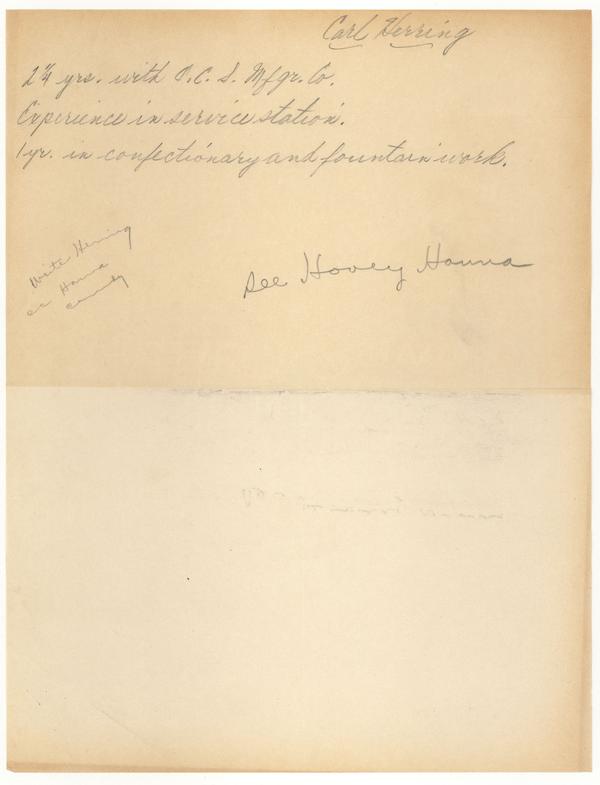 Carl Herring
2 1/4 yrs. with O.C.S. Mfgr. Co.
Experience in service station.
1 yr. in confectionary and fountain work.
Write Herring
cc Hanna
see Hovey Hanna